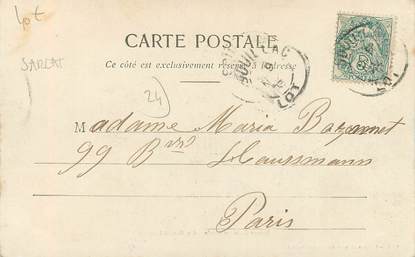 lot
SARLAT
24
CARTE POSTALE
Ce côté est exclusivement réservé à l'adresse
SOUILLAC
LOT
Madame Maria Bazannet
99 Bvd Haussmann
Paris